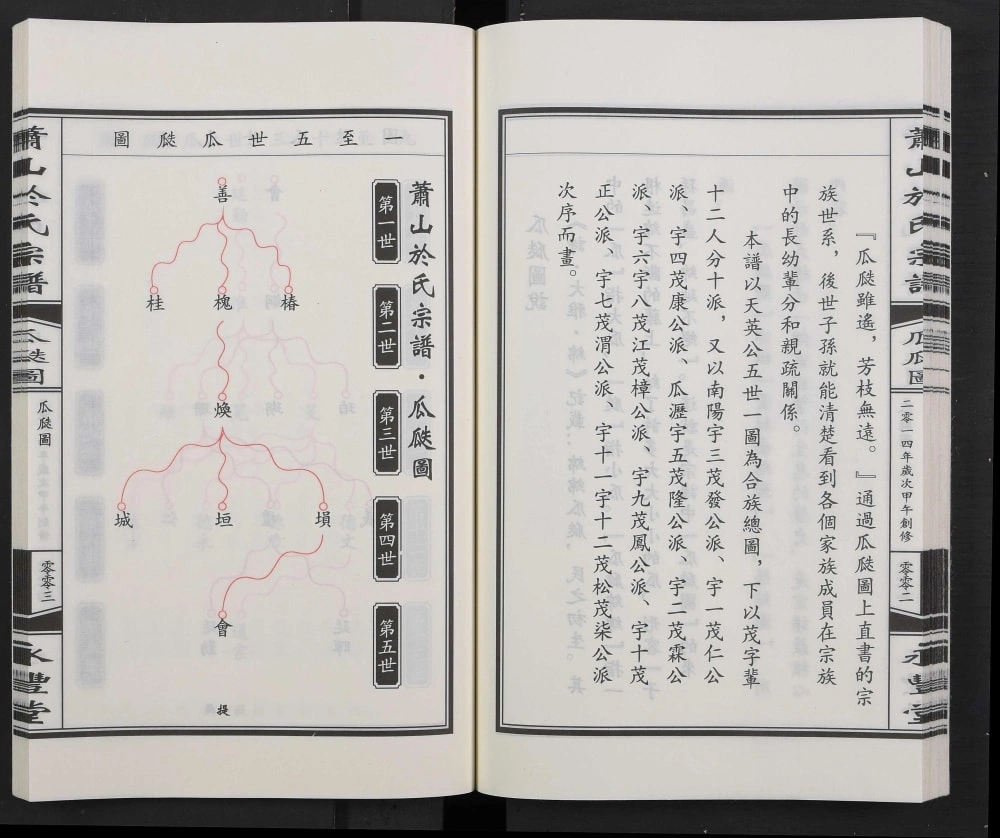 蕭山於氏宗譜
瓜瓞圖
二零一四年歲次甲午創修
零零二
永豐堂
『瓜瓞雖遙，芳枝無遠。』通過瓜瓞圖上直書的宗
族世系，後世子孫就能清楚看到各個家族成員在宗族
中的長幼輩分和親疏關係。
本譜以天英公五世一圖為合族總圖，下以茂字輩
十二人分十派，又以南陽宇三茂發公派、宇一茂仁公
派、宇四茂康公派、瓜瀝宇五茂隆公派、宇二茂霖公
派、宇六宇八茂江茂樟公派、宇九茂鳳公派、宇十茂
正公派、宇七茂渭公派、宇十一宇十二茂松茂柒公派
次序而畫。
一至五世瓜瓞圖
蕭山於氏宗譜·瓜瓞圖
第一世
第二世
第三世
第四世
第五世
善
椿
槐
桂
煥
塤
垣
城
會
提
蕭山於氏宗譜
瓜瓞圖
瓜瓞圖
零零三
永豐堂